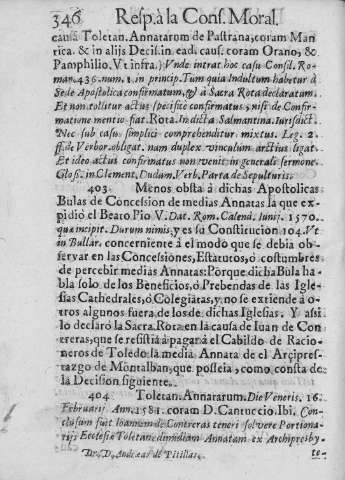 346 Resp. à la Cons. Moral.
causa Toletan. Annatarum de Pastrana, coram Man
rica. & in alijs Decis. in ead. caus. coram Orano, &
Pamphilio. Vt infra.) Vnde intrat hoc casu Consil. Ro-
man. 436. num. 1. in princip. Tum quia Indultum habetur à
Sede Apostolica confirmatum, & à Sacra Rota declaratum.
Et non tollitur actus specificè confirmatus, nisi de Confir-
matione mentio fiat. Rota. In dicta Salmantina Iurisdict.
Nec sub casu simplici comprehenditur mixtus. Leg. 2.
ff. de Verbor. obligat. nam duplex vinculum arctius ligat.
Et ideo actus confirmatus non venit in generali sermone.
Glos. in Clement. Dudum. Verb. Parta de Sepulturis.
403. Menos obsta à dichas Apostolicas
Bulas de Concession de medias Annatas la que ex-
pidiò el Beato Pio V. Dat. Rom. Calend. Iunij. 1570.
quæ incipit. Durum nimis, y es su Constitucion 104. Vt
in Bullar. concerniente à el modo que se debia ob-
servar en las Concessiones, Estatutos, ò costumbres
de percebir medias Annatas: Porque dicha Bula ha-
bla solo de los Beneficios, ò Prebendas de las Igle-
sias Cathedrales, ò Colegiatas, y no se extiende à o-
tros algunos fuera de los de dichas Iglesias. Y assi
lo declarò la Sacra Rota en la causa de Iuan de Con
treras, que se resistia à pagar à el Cabildo de Racio-
neros de Toledo la media Annata de el Arçipres-
tazgo de Montalban, que posseia, como consta de
la Decision siguiente.
404. Toletan. Annatarum. Die Veneris. 16.
Februarij. Ann. 1581. coram D. Cantuccio. Ibi. Con-
clusum fuit Ioannem de Contreras teneri solvere Portiona-
rijs Ecclesiæ Toletanæ dimidiam Annatam ex Archipresby-
Lic. D. Andreas de Pitillas. te-